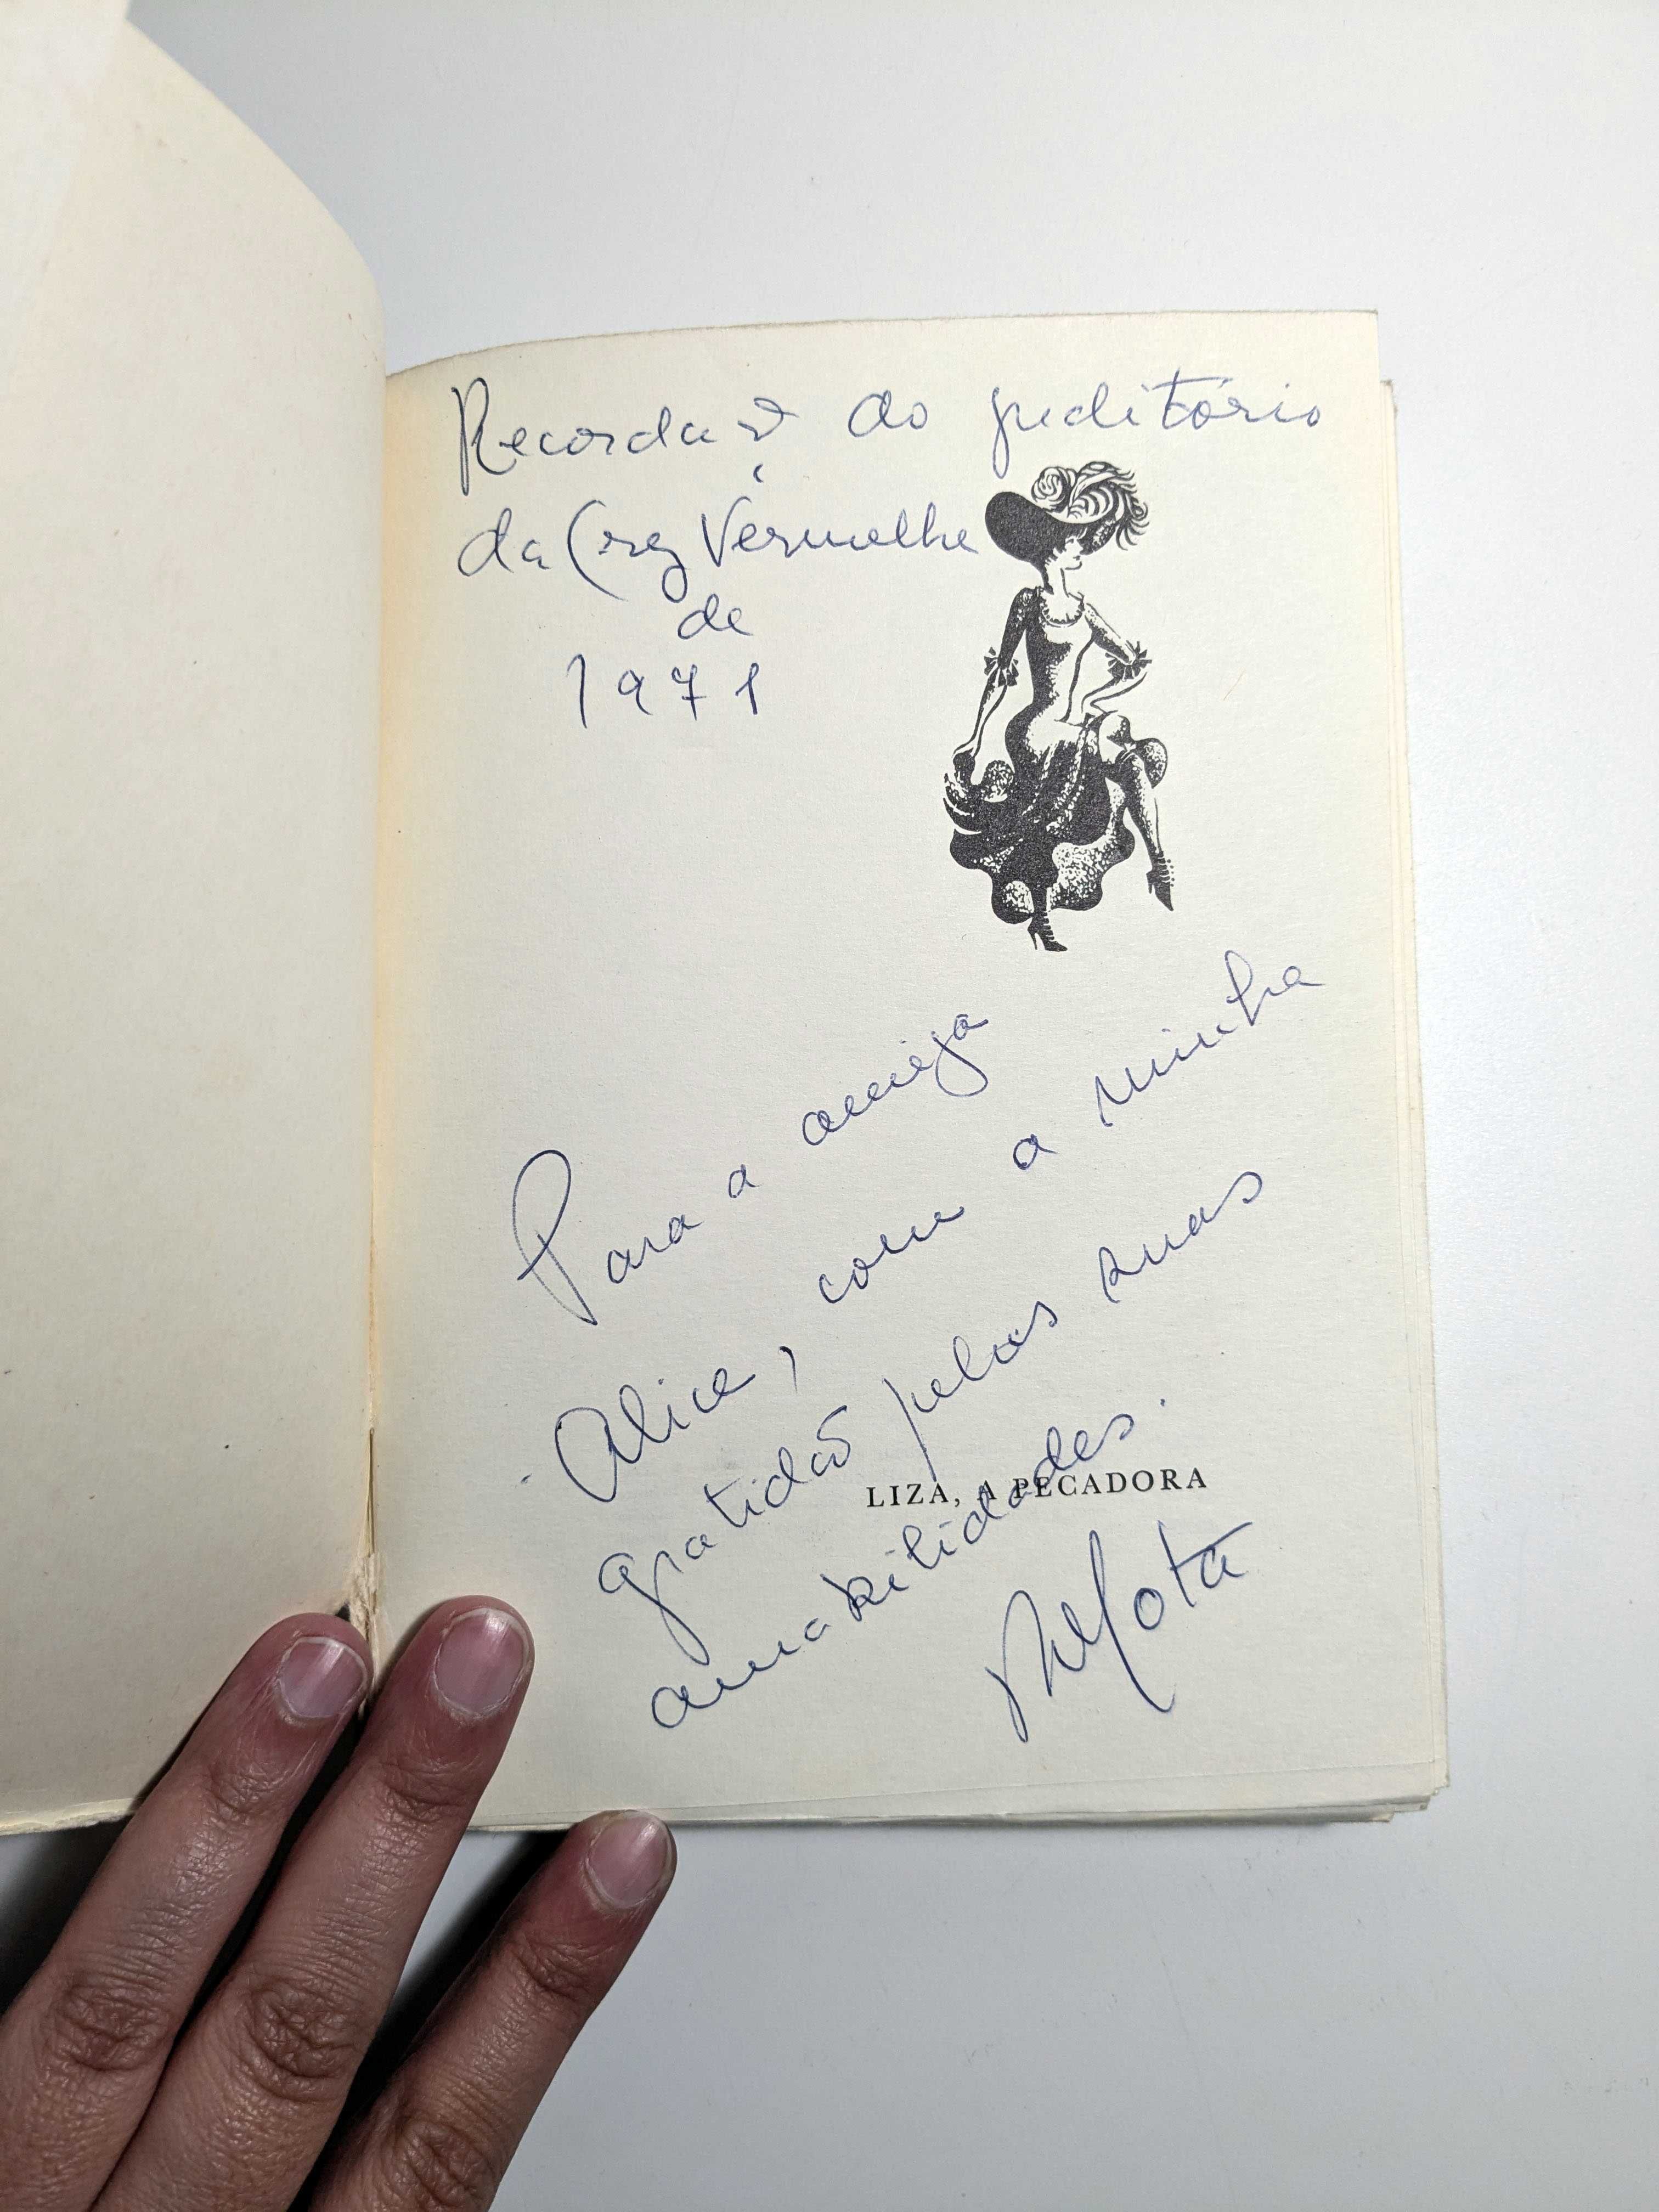 Recordação do peditório
da Cruz Vermelha
de
1971
Para a amiga
Alice, com a minha
gratidão pelas suas
amabilidades.
LIZA, A PECADORA
Mota